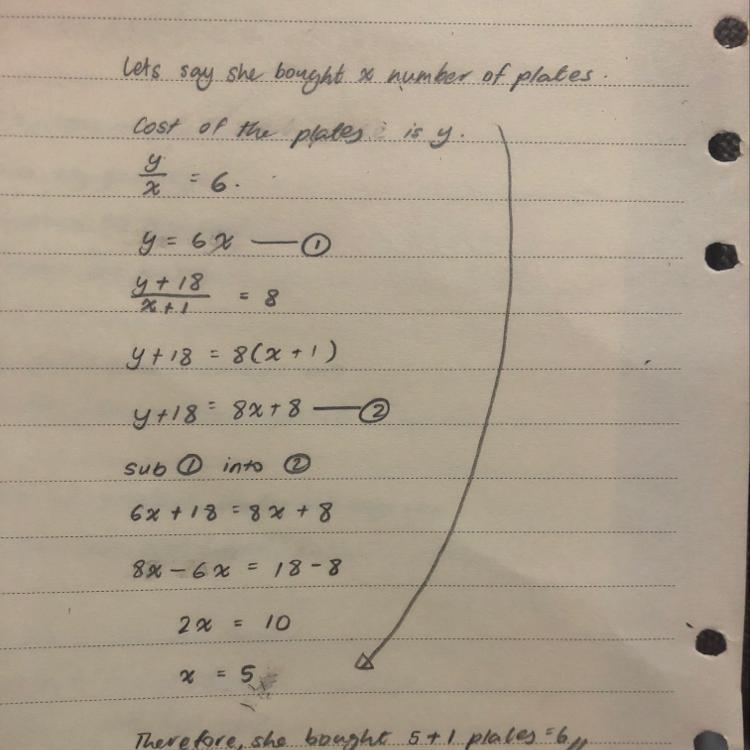 Lets say she bought x number of plates.
Cost of the plates is y.
y/x = 6.
y = 6x —— ①
y + 18 / x + 1 = 8
y + 18 = 8(x + 1)
y + 18 = 8x + 8 —— ②
sub ① into ②
6x + 18 = 8x + 8
8x - 6x = 18 - 8
2x = 10
x = 5
Therefore, she bought 5 + 1 plates = 6